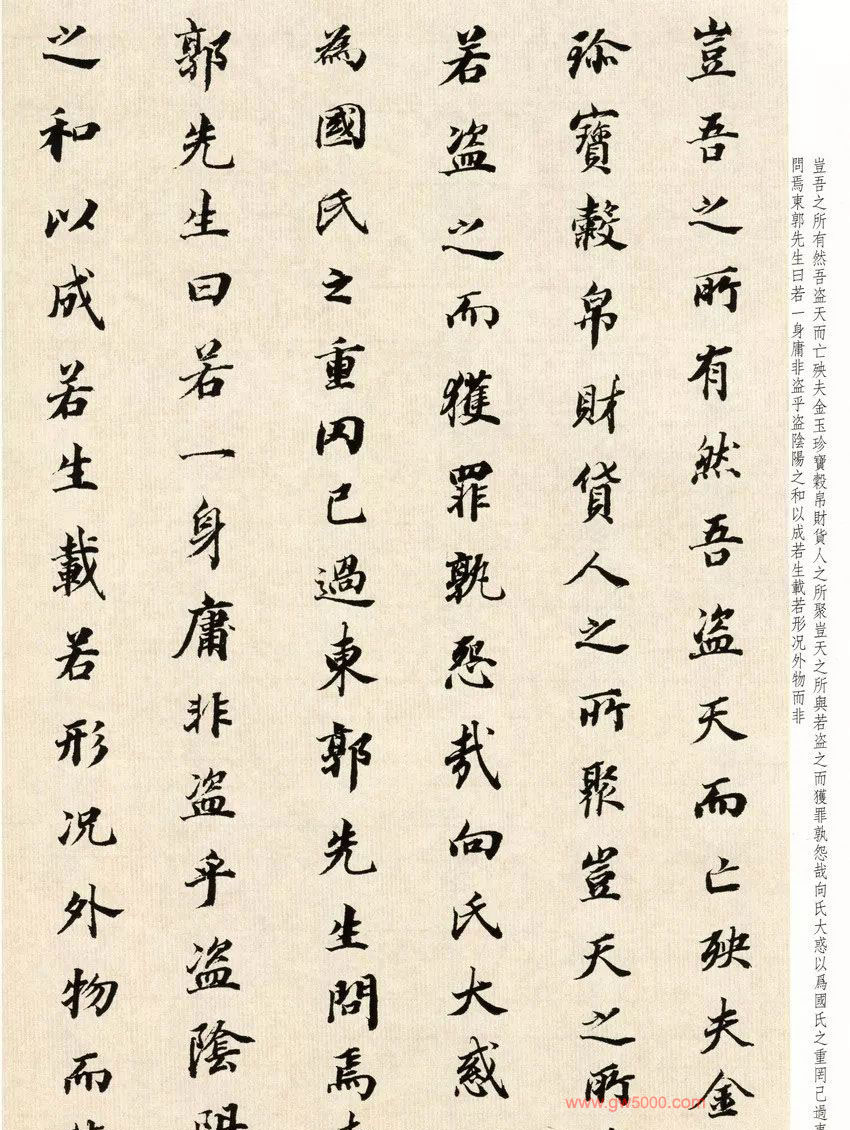 豈吾之所有然吾盗天而亡殃夫金玉珍寶穀帛財貨人之所聚豈天之所與若盗之而獲罪孰怨哉向氏大惑以爲國氏之重罔己過東
問焉東郭先生曰若一身庸非盗乎盗陰陽之和以成若生載若形况外物而非
豈吾之所有然吾盗天而亡殃夫金
珎寶穀帛財貨人之所聚豈天之所
若盗之而獲罪孰怨哉向氏大惑
為國氏之重罔已過東郭先生問焉
郭先生曰若一身庸非盗乎盗陰陽
之和以成若生載若形况外物而
www.gw5000.com